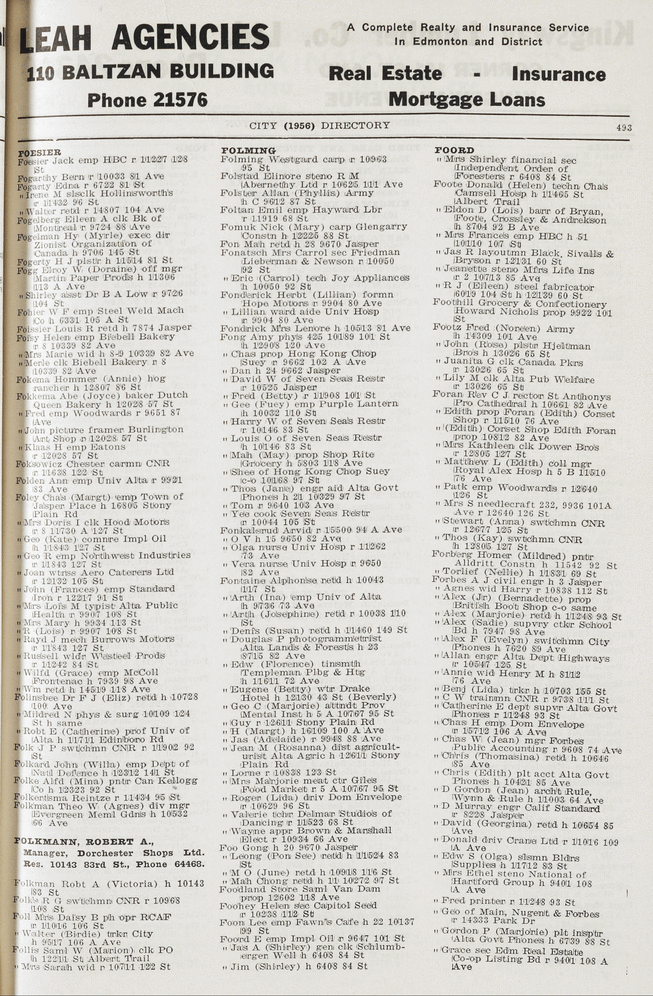 LEAH AGENCIES
110 BALTZAN BUILDING
Phone 21576
A Complete Realty and Insurance Service
In Edmonton and District
Real Estate - Insurance
Mortgage Loans
CITY (1956) DIRECTORY 493
FOESIER
Foessier Jack emp HBC r 11227 128
St
Fogarthy Bern r 10033 81 Ave
Fogarty Edna r 6722 81 St
" Irene M slsclk Hollinsworth's
r 11432 96 St
" Walter retd r 14807 104 Ave
Fogelberg Eileen A clk Bk of
Montreal r 9724 88 Ave
Fogelman Hy (Myrle) exec dir
Zionist Organization of
Canada h 9706 145 St
Fogerty H J plstr h 11514 81 St
Fogg Elroy W (Doraine) off mgr
Martin Paper Prods h 11306
113 A Ave
" Shirley asst Dr B A Low r 9726
104 St
Fohier W F emp Steel Weld Mach
Co h 6331 105 A St
Foissier Louis R retd h 7874 Jasper
Foisy Helen emp Biebell Bakery
r 8 10339 82 Ave
" Mrs Marie wid h 8-9 10339 82 Ave
" Merle clk Biebell Bakery r 8
10339 82 Ave
Fokema Hommer (Annie) hog
rancher h 12807 86 St
Fokkema Abe (Joyce) baker Dutch
Queen Bakery h 12028 57 St
" Fred emp Woodwards r 9651 87
Ave
" John picture framer Burlington
Art Shop r 12028 57 St
" Klaas H emp Eatons
r 12028 57 St
Foksowicz Chester carmn CNR
r 11638 122 St
Folden Ann emp Univ Alta r 9921
83 Ave
Foley Chas (Margt) emp Town of
Jasper Place h 16805 Stony
Plain Rd
" Mrs Doris I clk Hood Motors
r 8 11730 A 127 St
" Geo (Kate) comtre Impl Oil
h 11843 127 St
" Geo R emp Northwest Industries
r 11843 127 St
" Joan wtrss Aero Caterers Ltd
r 12132 105 St
" John (Frances) emp Standard
Iron r 12217 91 St
" Mrs Lois M typist Alta Public
Health r 9907 108 St
" Mrs Mary h 9934 113 St
" R (Lois) r 9907 108 St
" Rayd J mech Burrows Motors
r 11843 127 St
" Russell wldr Westeel Prods
r 11242 84 St
" Wilfd (Grace) emp McColl
Frontenac h 7939 98 Ave
" Wm retd h 14519 118 Ave
Folinsbee Dr F J (Eliz) retd h 10728
100 Ave
" Mildred N phys & surg 10109 124
St h same
" Robt E (Catherine) prof Univ of
Alta h 11711 Edinboro Rd
Folk J P swtchmn CNR r 11902 92
St
Folkard John (Willa) emp Dept of
Natl Defence h 12312 141 St
Folke Alfd (Mina) pntr Can Kellogg
Co h 12323 92 St
Folkertsma Reintze r 11434 95 St
Folkman Theo W (Agnes) div mgr
Evergreen Meml Gdns h 10532
66 Ave
FOLKMANN, ROBERT A.,
Manager, Dorchester Shops Ltd.
Res. 10143 83rd St., Phone 64468.
Folkman Robt A (Victoria) h 10143
83 St
Folkis R G swtchmn CNR r 10968
108 St
Foll Mrs Daisy B ph opr RCAF
r 11016 106 St
" Walter (Birdie) trkr City
h 9517 106 A Ave
Follis Saml W (Marion) clk PO
h 12211 St Albert Trail
" Mrs Sarah wid r 10711 122 St
FOLMING
Folming Westgard carp r 10963
95 St
Folstad Elinore steno R M
Abernethy Ltd r 10625 111 Ave
Folster Allan (Phyllis) Army
h C 9612 87 St
Foltan Emil emp Hayward Lbr
r 11919 68 St
Fomuk Nick (Mary) carp Glengarry
Constn h 12225 88 St
Fon Mah retd h 28 9670 Jasper
Fonatsch Mrs Carrol sec Friedman
Lieberman & Newson r 10050
92 St
" Eric (Carrol) tech Joy Appliances
h 10050 92 St
Fonderick Herbt (Lillian) formn
Hope Motors r 9904 80 Ave
" Lillian ward aide Univ Hosp
r 9904 80 Ave
Fondrick Mrs Lenore h 10513 81 Ave
Fong Amy phys 425 10189 101 St
h 12908 120 Ave
" Chas prop Hong Kong Chop
Suey r 9662 102 A Ave
" Dan h 24 9662 Jasper
" David W of Seven Seas Restr
r 10525 Jasper
" Fred (Betty) r 11908 101 St
" Geo (Puey) emp Purple Lantern
h 10032 110 St
" Harry W of Seven Seas Restr
r 10146 83 St
" Louis O of Seven Seas Restr
h 10146 83 St
" Mah (May) prop Shop Rite
Grocery h 5803 118 Ave
" Shee of Hong Kong Chop Suey
c-o 10168 97 St
" Thos (Jane) engr aid Alta Govt
Phones h 21 10329 97 St
" Tom r 9640 103 Ave
" Yee cook Seven Seas Restr
r 10044 105 St
Fonkalsrud Arvid r 15500 94 A Ave
" O V h 15 9650 82 Ave
" Olga nurse Univ Hosp r 11262
73 Ave
" Vera nurse Univ Hosp r 9650
82 Ave
Fontaine Alphonse retd h 10043
117 St
" Arth (Ina) emp Univ of Alta
h 9736 73 Ave
" Arth (Josephine) retd r 10038 110
St
" Denis (Susan) retd h 11460 149 St
" Douglas P photogrammetrist
Alta Lands & Forests h 23
8715 82 Ave
" Edw (Florence) tinsmith
Templeman Plbg & Htg
h 11611 72 Ave
" Eugene (Betty) wtr Drake
Hotel h 12130 43 St (Beverly)
" Geo C (Marjorie) attndt Prov
Mental Inst h 5 A 10767 95 St
" Guy r 12611 Stony Plain Rd
" H (Margt) h 16109 100 A Ave
" Jas (Adelaide) r 9948 88 Ave
" Jean M (Rosanna) dist agricult-
urist Alta Agric h 12611 Stony
Plain Rd
" Lorne r 10838 123 St
" Mrs Marjorie meat ctr Giles
Food Market r 5 A 10767 95 St
" Roger (Lida) driv Dom Envelope
r 10629 96 St
" Valerie tchr Delmar Studios of
Dancing r 11523 68 St
" Wayne appr Brown & Marshall
Elect r 10934 66 Ave
Foo Gong h 20 9670 Jasper
" Leong (Pon See) retd h 11524 83
St
" M O (June) retd h 10918 116 St
" Mah Chong retd h 11 10272 97 St
Foodland Store Saml Van Dam
prop 12602 118 Ave
Foohey Helen sec Capitol Seed
r 10238 112 St
Foon Lee emp Fawn's Cafe h 22 10137
99 St
Foord E emp Impl Oil r 9647 101 St
" Jas A (Shirley) gen clk Schlumb-
erger Well h 6408 84 St
" Jim (Shirley) h 6408 84 St
FOORD
" Mrs Shirley financial sec
Independent Order of
Foresters r 6408 84 St
Foote Donald (Helen) techn Chas
Camsell Hosp h 11465 St
Albert Trail
" Eldon D (Lois) barr of Bryan,
Foote, Crossley & Andrekson
h 8704 92 B Ave
" Mrs Frances emp HBC h 51
10110 107 St
" Jas R layoutmn Black, Sivalls &
Bryson r 12131 60 St
" Jeanette steno Mfrs Life Ins
r 2 10713 85 Ave
" R J (Eileen) steel fabricator
6019 104 St h 12139 60 St
Foothill Grocery & Confectionery
Howard Nichols prop 9922 101
St
Footz Fred (Noreen) Army
h 14309 101 Ave
" John (Rose) plstr Hjeltman
Bros h 13026 65 St
" Juanita G clk Canada Pkrs
r 13026 65 St
" Lily M clk Alta Pub Welfare
r 13026 65 St
Foran Rev C J rector St Anthonys
Pro Cathedral h 10661 82 Ave
" Edith prop Foran (Edith) Corset
Shop r 11510 76 Ave
" (Edith) Corset Shop Edith Foran
prop 10812 82 Ave
" Mrs Kathleen clk Dower Bros
r 12805 127 St
" Matthew L (Edith) coll mgr
Royal Alex Hosp h 5 B 11510
76 Ave
" Patk emp Woodwards r 12640
126 St
" Mrs S needlecraft 232, 9936 101A
Ave r 12640 126 St
" Stewart (Anna) swtchmn CNR
r 12677 125 St
" Thos (Kay) swtchmn CNR
h 12805 127 St
Forberg Homer (Mildred) pntr
Alldritt Constn h 11542 92 St
" Torlief (Nellie) h 11831 69 St
Forbes A J civil engr h 3 Jasper
" Agnes wid Harry r 10838 112 St
" Alex (Jr) (Bernadette) prop
British Boot Shop c-o same
" Alex (Marjorie) retd h 11248 93 St
" Alex (Sadie) supvry ctkr School
Bd h 7947 98 Ave
" Alex F (Evelyn) switchmn City
Phones h 7620 89 Ave
" Allan engr Alta Dept Highways
r 10547 125 St
" Annie wid Henry M h 8112
76 Ave
" Benj (Lida) trkr h 10703 155 St
" C W trainmn CNR r 9738 111 St
" Catherine E dept supvr Alta Govt
Phones r 11248 93 St
" Chas H emp Dom Envelope
r 15712 106 A Ave
" Chas W (Jean) mgr Forbes
Public Accounting r 9608 74 Ave
" Chris (Thomasina) retd h 10646
85 Ave
" Chris (Edith) plt acct Alta Govt
Phones h 10421 85 Ave
" D Gordon (Jean) archt Rule,
Wynn & Rule h 11003 64 Ave
" D Murray engr Calif Standard
r 8228 Jasper
" David (Georgina) retd h 10654 85
Ave
" Donald driv Crane Ltd r 11016 109
A Ave
" Edw S (Olga) slsmn Bldrs
Supplies h 11712 83 St
" Mrs Ethel steno National of
Hartford Group h 9401 108
A Ave
" Fred printer r 11248 93 St
" Geo of Main, Nugent & Forbes
r 14333 Park Dr
" Gordon P (Marjorie) plt insptr
Alta Govt Phones h 6739 88 St
" Grace sec Edm Real Estate
Co-op Listing Bd r 9401 108 A
Ave